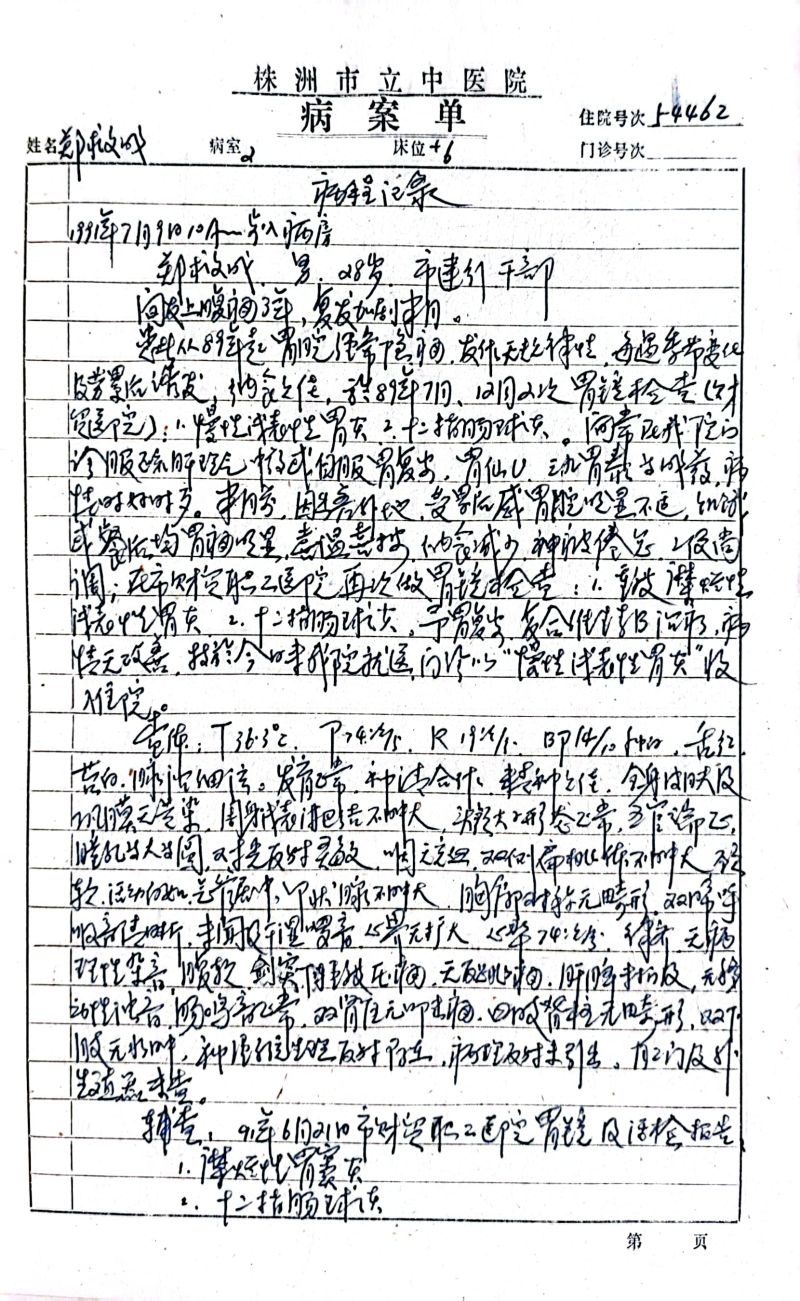 株洲市立中医院
病案单
住院号次 54462
姓名 郑救成 病室 2 床位 +6 门诊号次
病程记录
1991年7月9日10Am 步入病房
郑救成、男、28岁、市建行干部
间发上腹痛3年，复发加剧半月。
患者从89年起胃脘经常隐痛，发作无规律性，每遇季节变化
及劳累后诱发，纳食欠佳，于89年7月、12月2次胃镜检查（财
贸医院）：1.慢性浅表性胃炎 2.十二指肠球炎。间常在我院门
诊服疏肝理气中药或自服胃复安、胃仙U、三九胃泰等成药，病
情时好时歹。半月前，因出差外地，受累后感胃脘明显不适，饥饿
或餐后均胃痛明显，喜温喜按，纳食减少，神疲倦怠，二便尚
调；在市财贸职工医院再次做胃镜检查：1.重度糜烂性
浅表性胃炎 2.十二指肠球炎，予胃复安、复合维生素B治疗，病
情无改善，故于今日来我院就医，门诊以“慢性浅表性胃炎”收
入住院。
查体：T36.3℃ P74次/分 R19次/分 BP14/10kpa，舌红，
苔白，脉沉细弦。发育正常，神清合作，精神欠佳，全身皮肤及
巩膜无黄染，周身浅表淋巴结不肿大，头颅大小形态正常，五官端正，
瞳孔等大等圆，对光反射灵敏，咽无充血，双侧扁桃体不肿大，颈
软，活动自如，气管居中，甲状腺不肿大，胸廓对称无畸形，双肺呼
吸音清晰，未闻及干湿啰音，心界无扩大，心率74次/分，律齐，无病
理性杂音，腹软，剑突下轻度压痛，无反跳痛，肝脾未扪及，无移
动性浊音，肠鸣音正常，双肾区无叩击痛，四肢脊柱无畸形，双下
肢无水肿，神经系统生理反射存在，病理反射未引出，肛门及外
生殖器未查。
辅查：91年6月21日市财贸职工医院胃镜及活检报告
1.糜烂性胃窦炎
2.十二指肠球炎
第 页